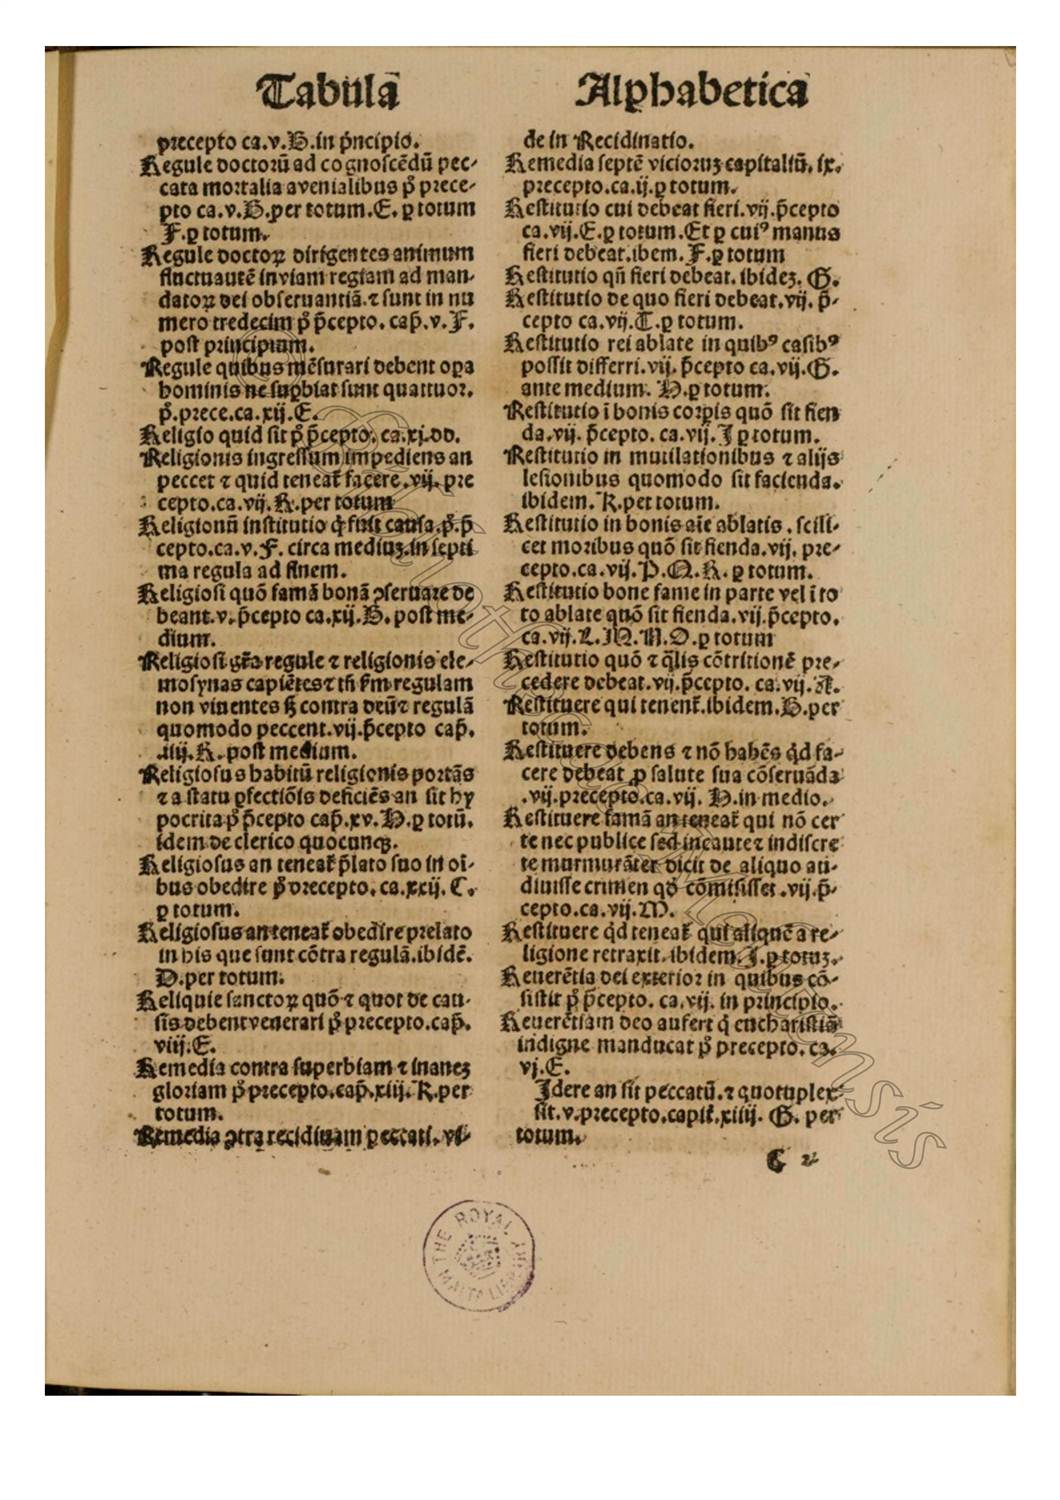 Tabula Alphabetica
precepto ca.v.B.in p̄ncipio.
Regule doctorū ad cognoscēdū pec-
cata mortalia a venialibus p̄ prece-
pto ca.v.B.per totum.E. ꝑ totum
F.ꝑ totum.
Regule doctoꝝ dirigentes animum
fluctuautē in viam regiam ad man-
datoꝝ dei obseruantiā.⁊ sunt in nu
mero tredecim p̄ p̄cepto. cap̄.v.F.
post principium.
Regule quibus mēsurari debent oꝑa
hominis ne suꝑbiat sunt quattuor.
p̄.prece.ca.xij.E.
Religio quid sit p̄ p̄cepto. ca.xj.DD.
Religionis ingressum impediens an
peccet ⁊ quid teneat᷑ facere.vij.pre
cepto.ca.vij.K.per totum
Religionū institutio q̄ fuit causa.p̄.p̄
cepto.ca.v.F. circa mediuꝫ.in septi
ma regula ad finem.
Religiosi quō famā bonā ꝯseruare de
beant.v.p̄cepto ca.xij.B. post me-
dium.
Religiosi gr̄a regule ⁊ religionis ele-
mosynas capiētes ⁊ tn̄ fm regulam
non viuentes sꝫ contra deū ⁊ regulā
quomodo peccent.vij.p̄cepto cap̄.
.iiij.K. post medium.
Religiosus habitū religionis portās
⁊ a statu ꝑfectiōis deficiēs an sit hy
pocrita p̄ p̄cepto cap̄.xv.H.ꝑ totū.
idem de clerico quocunqꝫ.
Religiosus an teneat᷑ p̄lato suo in oī-
bus obedire p̄ precepto. ca.xxij. C.
ꝑ totum.
Religiosus an teneat᷑ obedire prelato
in his que sunt cōtra regulā.ibidē.
D.per totum.
Reliquie sanctoꝝ quō ⁊ quot de cau-
sis debent venerari p̄ precepto.cap̄.
viij.E.
Remedia contra superbiam ⁊ inaneꝫ
gloriam p̄ precepto.cap̄.xiij.K.per
totum.
Remedia ꝯtra recidiuam peccati. vi-
de in Recidinatio.
Remedia septē vicioruꝫ capitaliū. ix.
precepto.ca.ij.ꝑ totum.
Restitutio cui debeat fieri.vij.p̄cepto
ca.vij.E.ꝑ totum.Et ꝑ cuiꝰ manus
fieri debeat.ibem.F.ꝑ totum
Restitutio qn̄ fieri debeat. ibideꝫ. G.
Restitutio de quo fieri debeat.vij. p̄-
cepto ca.vij.T.ꝑ totum.
Restitutio rei ablate in quibꝰ casibꝰ
possit differri.vij.p̄cepto ca.vij.G.
ante medium. H.ꝑ totum.
Restitutio ī bonis corꝑis quō sit fien
da.vij. p̄cepto. ca.vij.I ꝑ totum.
Restitutio in mutilationibus ⁊ alijs
lesionibus quomodo sit facienda.
ibidem.K.per totum.
Restitutio in bonis aīe ablatis. scili-
cet moribus quō sit fienda.vij. pre-
cepto.ca.vij.P.Q.R. ꝑ totum.
Restitutio bone fame in parte vel ī to
to ablate quō sit fienda.vij.p̄cepto.
ca.vij.L.M.N.O.ꝑ totum
Restitutio quō ⁊ q̄lis cōtritionē pre-
cedere debeat.vij.p̄cepto. ca.vij.A.
Restituere qui tenent᷑.ibidem.B.per
totum.
Restituere debens ⁊ nō habēs q̇d fa-
cere debeat ꝓ salute sua cōseruāda
.vij.precepto.ca.vij. H.in medio.
Restituere famā an teneat᷑ qui nō cer
te nec publice sed incaute ⁊ indiscre
te murmurāter dicit de aliquo au-
diuisse crimen qd̄ cōmisisset .vij.p̄-
cepto.ca.vij.M.
Restituere q̇d teneat᷑ qui aliquē a re-
ligione retraxit. ibidem.I.ꝑ totuꝫ.
Reuerētia dei exterior in quibus cō-
sistit p̄ p̄cepto. ca.vij. in principio.
Reuerētiam deo aufert q̇ eucharistiā
indigne manducat p̄ precepto. ca.
vj.E.
Idere an sit peccatū.⁊ quotuplex
sit.v.precepto.capit᷑.xiiij. G. per
totum.
C 2
THE ROYAL MALTA LIBRARY